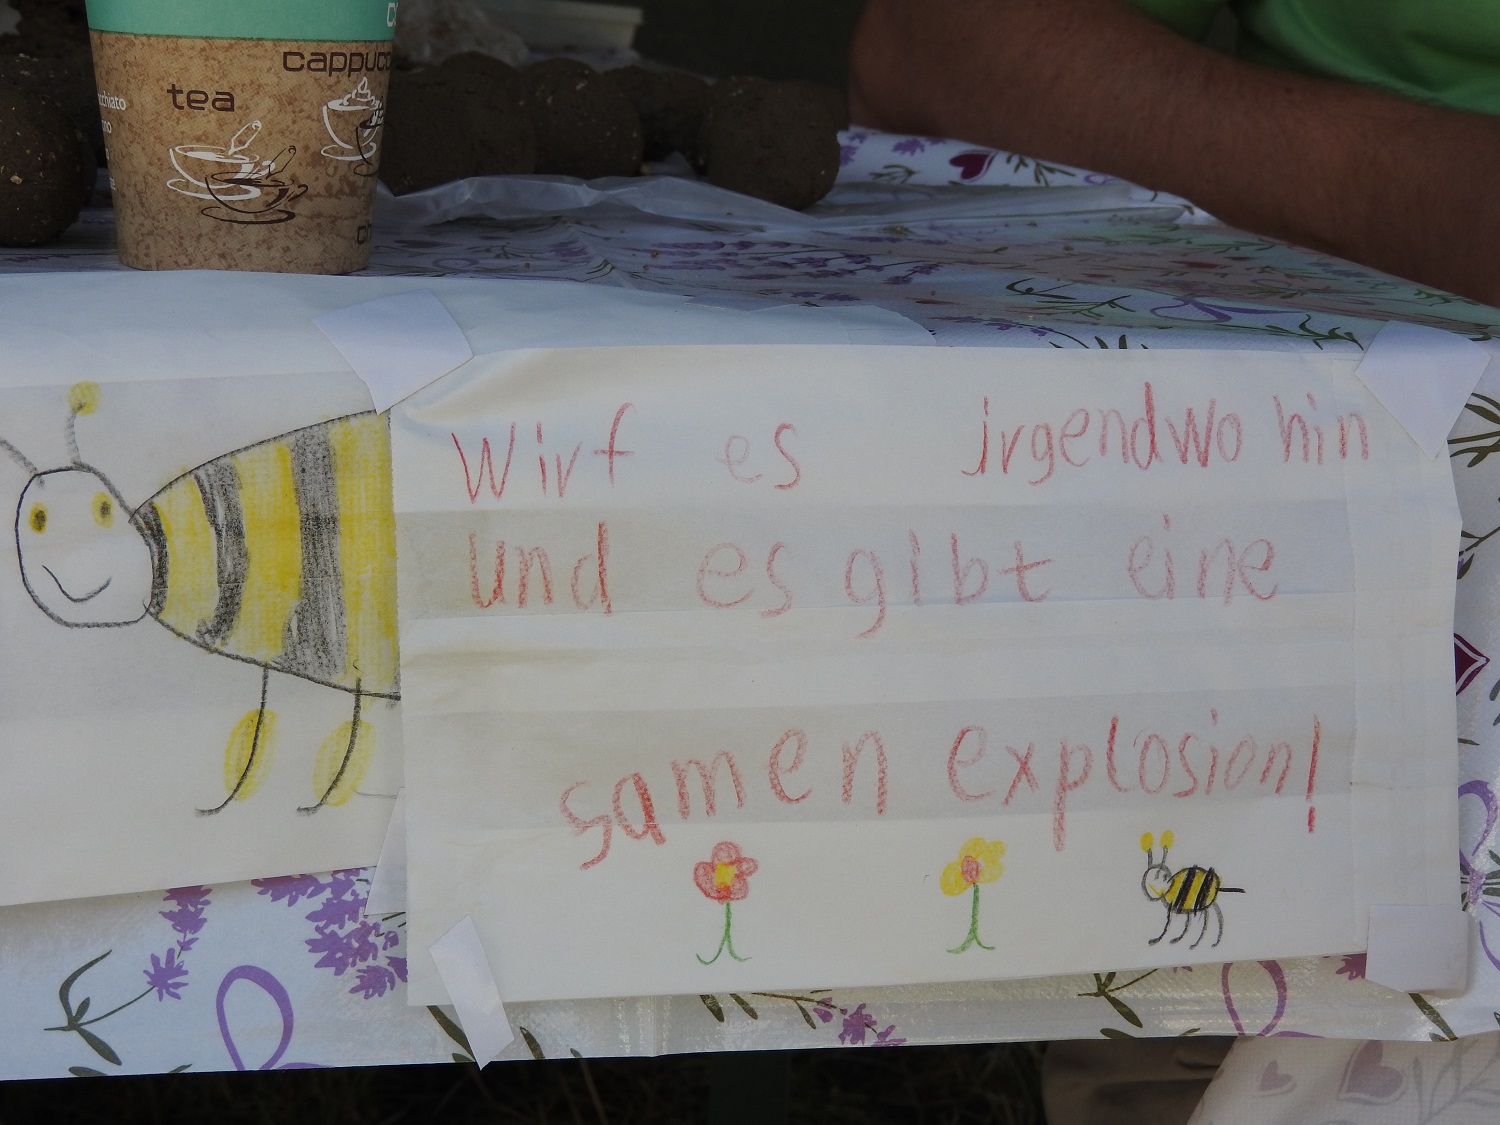 cappuc
tea
cchiato
Wirf es irgendwo hin
und es gibt eine
samen explosion!